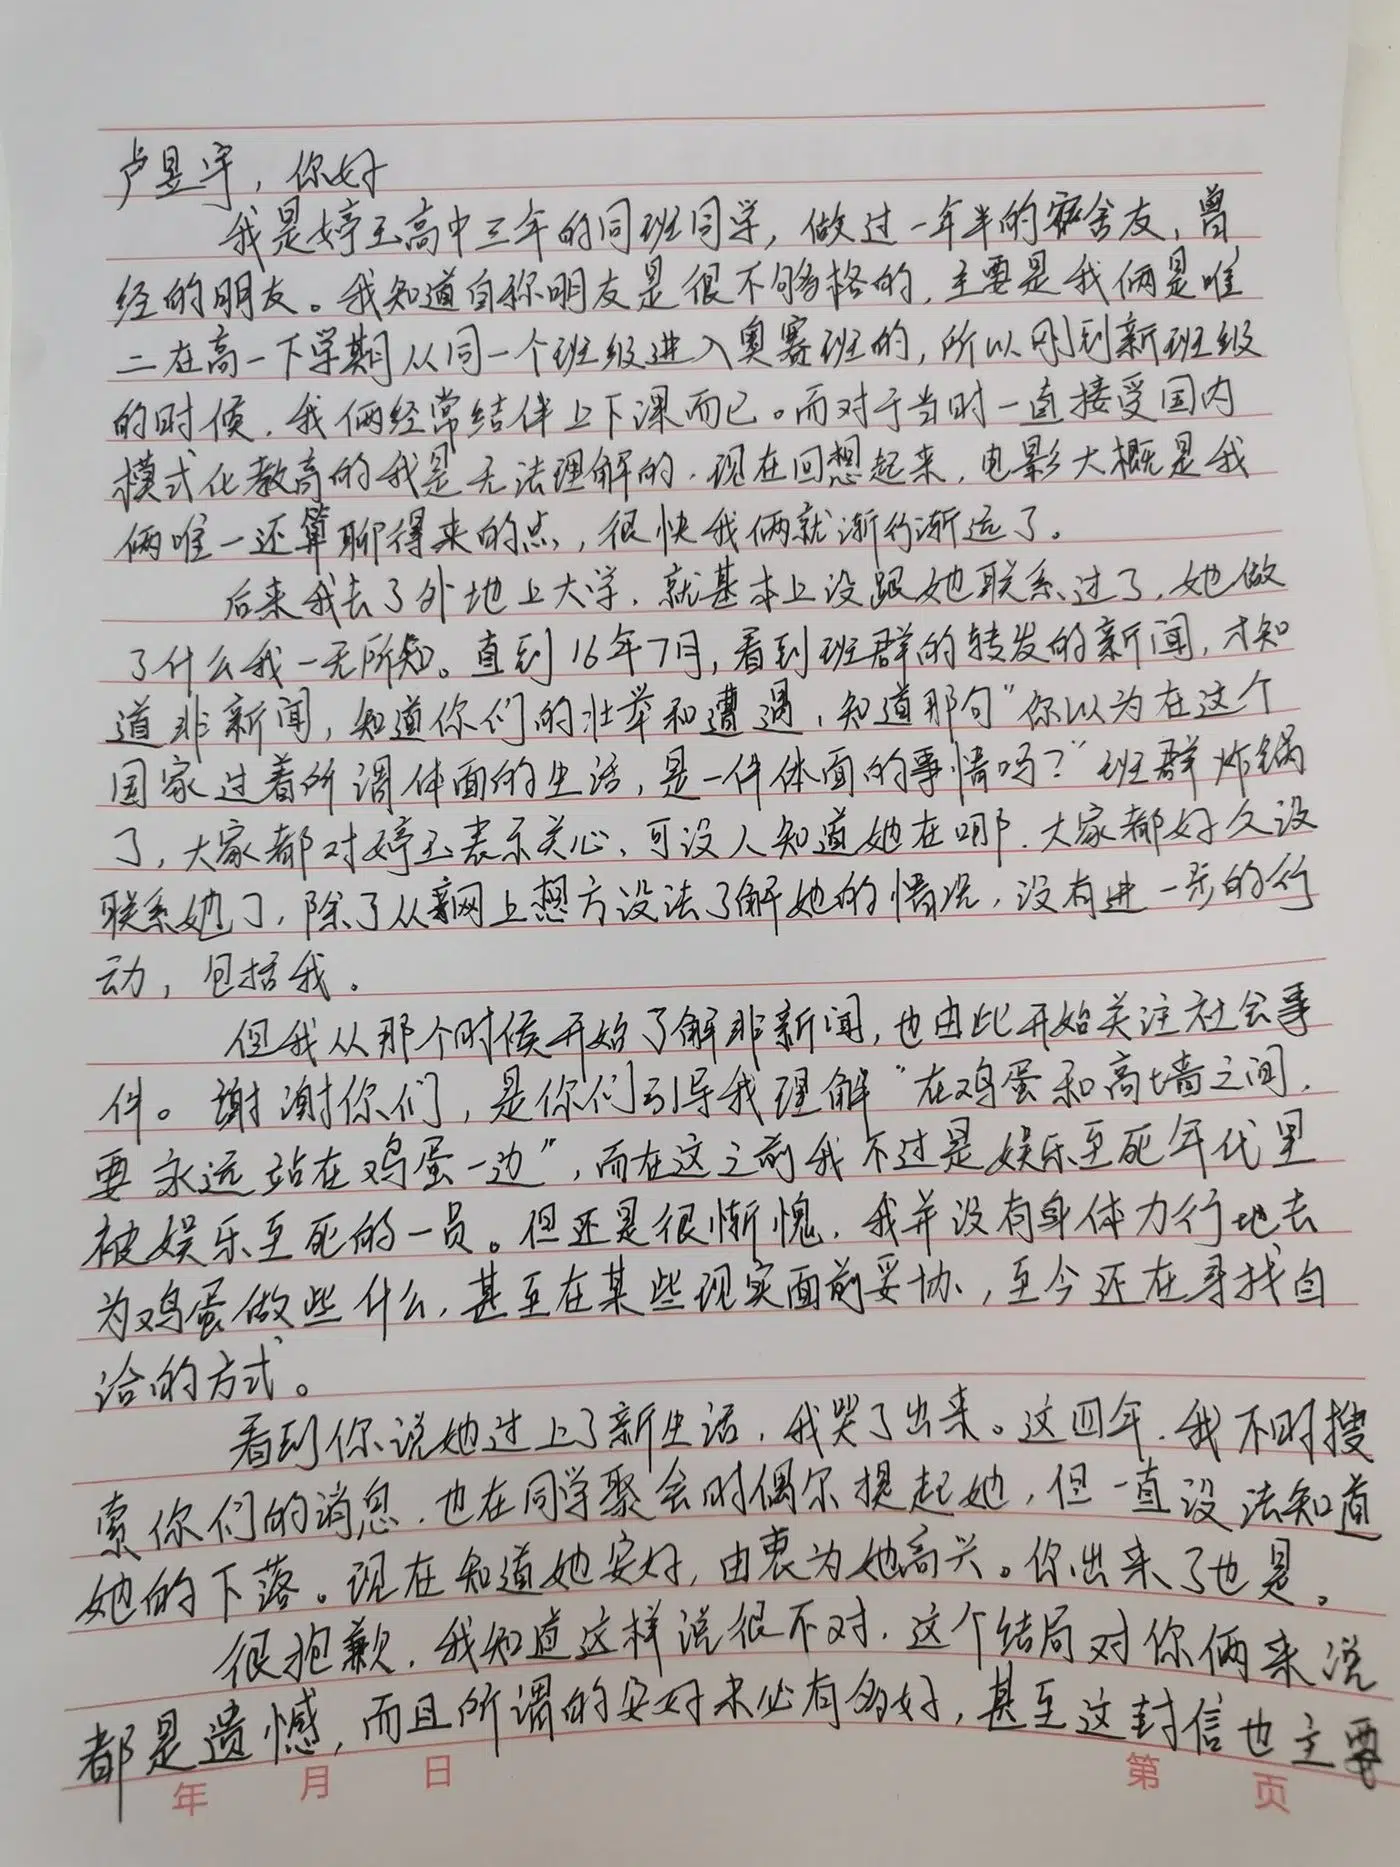 卢昱宇，你好
我是婷玉高中三年的同班同学，做过一年半的舍友，曾
经的朋友。我知道自称朋友是很不够格的，主要是我俩是唯
二在高一下学期从同一个班级进入奥赛班的，所以刚到新班级
的时候，我俩经常结伴上下课而已。而对于当时一直接受国内
模式化教育的我是无法理解的，现在回想起来，电影大概是我
俩唯一还算聊得来的点，很快我俩就渐行渐远了。
后来我去了外地上大学，就基本上没跟她联系过了，她做
了什么我一无所知。直到16年7月，看到班群的转发的新闻，才知
道非新闻，知道你们的壮举和遭遇，知道那句“你以为在这个
国家过着所谓体面的生活，是一件体面的事情吗？”班群炸锅
了，大家都对婷玉表示关心，可没人知道她在哪，大家都好久没
联系她了，除了从网上想方设法了解她的情况，没有进一步的行
动，包括我。
但我从那个时候开始了解非新闻，也由此开始关注社会事
件。谢谢你们，是你们引导我理解“在鸡蛋和高墙之间，
要永远站在鸡蛋一边”，而在这之前我不过是娱乐至死年代里
被娱乐至死的一员。但还是很惭愧，我并没有身体力行地去
为鸡蛋做些什么，甚至在某些现实面前妥协，至今还在寻找自
洽的方式。
看到你说她过上了新生活，我哭了出来。这四年，我不时搜
索你们的消息，也在同学聚会时偶尔提起她，但一直没法知道
她的下落。现在知道她安好，由衷为她高兴。你出来了也是。
很抱歉，我知道这样说很不对，这个结局对你俩来说
都是遗憾，而且所谓的安好未必有多好，甚至这封信也主要
年 月 日 第 页